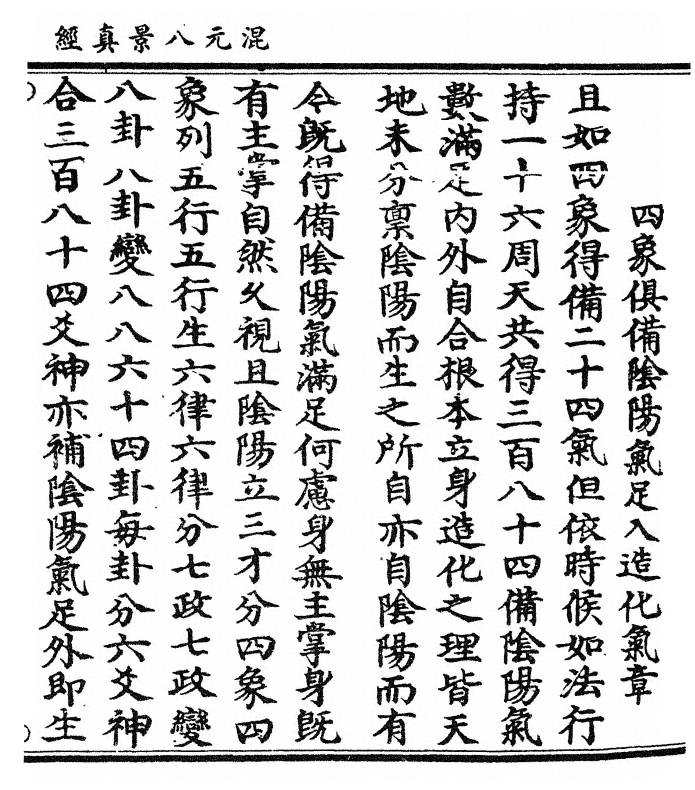 混元八景真經
四象俱備陰陽氣足入造化氣章
且如四象得備二十四氣但依時候如法行
持一十六周天共得三百八十四備陰陽氣
數滿足內外自合根本立身造化之理皆天
地未分禀陰陽而生之所自亦自陰陽而有
今既得備陰陽氣滿足何慮身無主掌身既
有主掌自然久視且陰陽立三才分四象四
象列五行五行生六律六律分七政七政變
八卦八卦變八八六十四卦每卦分六爻神
合三百八十四爻神亦補陰陽氣足外即生